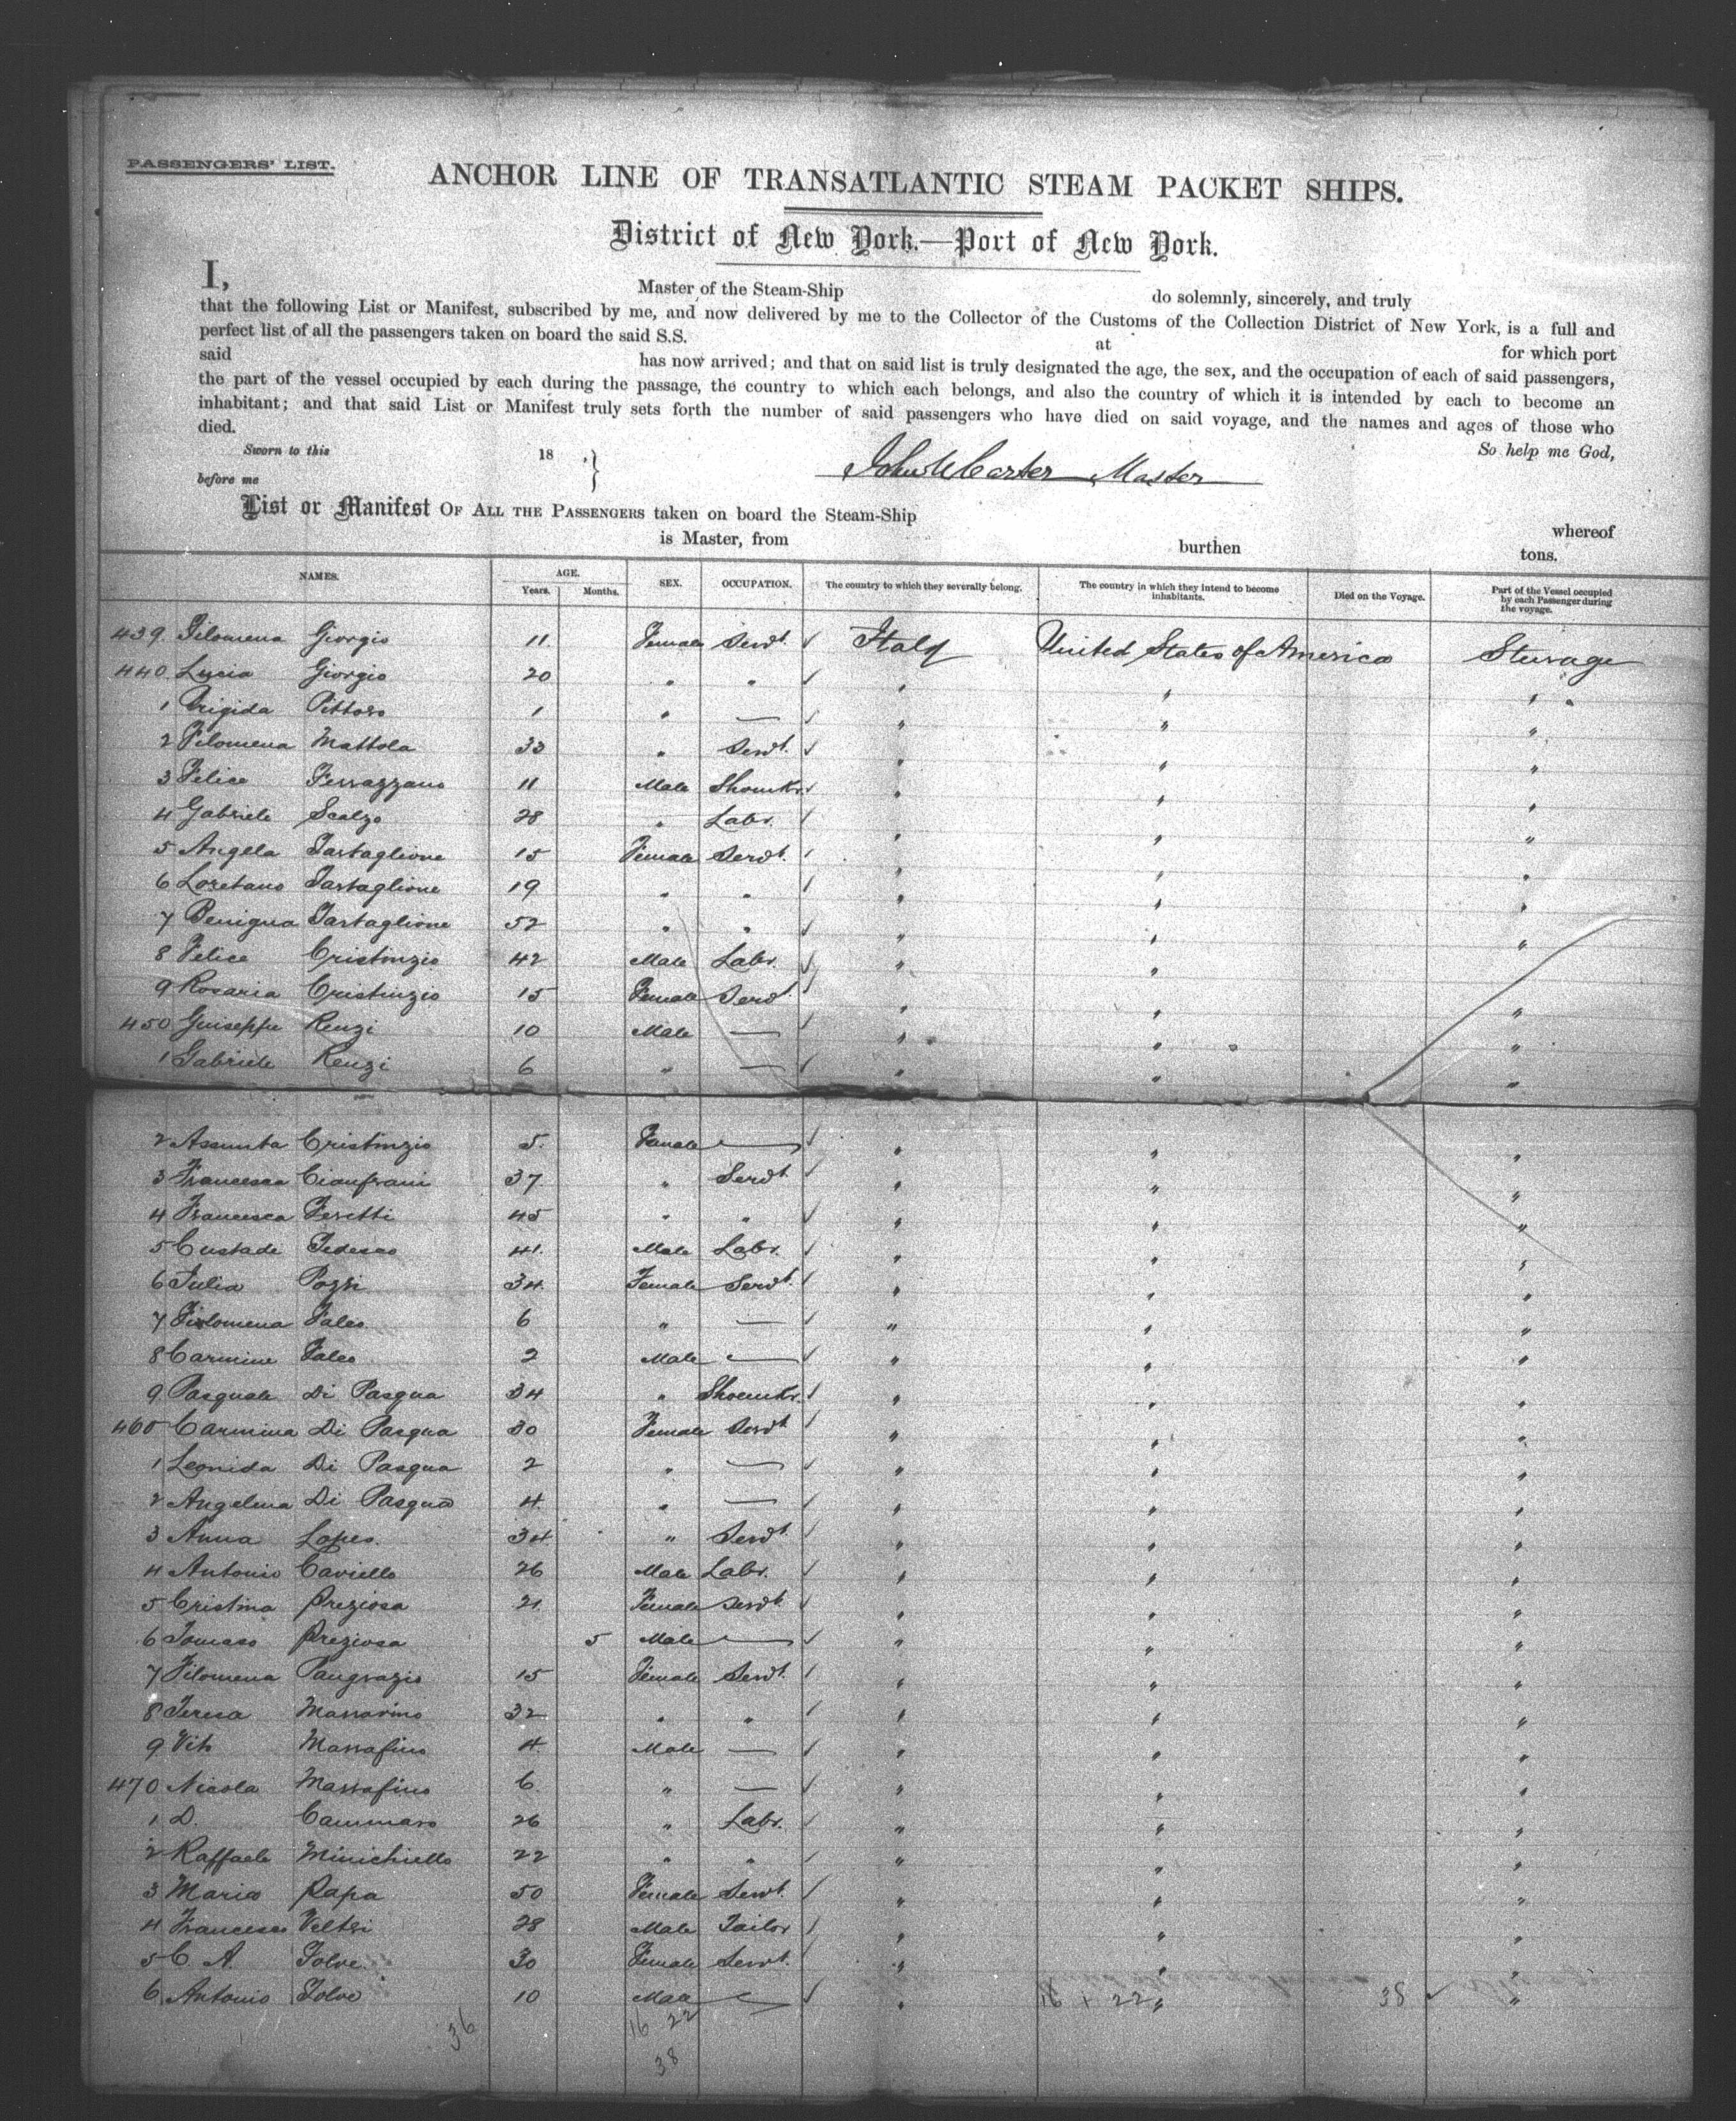 PASSENGERS' LIST.
ANCHOR LINE OF TRANSATLANTIC STEAM PACKET SHIPS.
District of New York.—Port of New York.
I, Master of the Steam-Ship do solemnly, sincerely, and truly
that the following List or Manifest, subscribed by me, and now delivered by me to the Collector of the Customs of the Collection District of New York, is a full and
perfect list of all the passengers taken on board the said S.S. at for which port
said has now arrived; and that on said list is truly designated the age, the sex, and the occupation of each of said passengers,
the part of the vessel occupied by each during the passage, the country to which each belongs, and also the country of which it is intended by each to become an
inhabitant; and that said List or Manifest truly sets forth the number of said passengers who have died on said voyage, and the names and ages of those who
died.
So help me God,
Sworn to this 18 , }
before me
John W Carter Master
List or Manifest OF ALL THE PASSENGERS taken on board the Steam-Ship whereof
is Master, from burthen tons.
NAMES. AGE. Years. Months. SEX. OCCUPATION. The country to which they severally belong. The country in which they intend to become inhabitants. Died on the Voyage. Part of the Vessel occupied by each Passenger during the voyage.
439 Filomena Giorgio 11. Female Servt. ✓ Italy United States of America Steerage
440 Lucia Giorgio 20 " " ✓ " " "
1 Brigida Pittoro 1 " — ✓ " " "
2 Filomena Mattola 33 " Servt. ✓ " " "
3 Felice Ferrazzano 11 Male Shoemkr. ✓ " " "
4 Gabriele Scalzo 28 " Labr. ✓ " " "
5 Angela Tartaglione 15 Female Servt. ✓ " " "
6 Loretano Tartaglione 19 " " ✓ " " "
7 Benigna Tartaglione 52 " " ✓ " " "
8 Felice Cristinzio 42 Male Labr. ✓ " " "
9 Rosaria Cristinzio 15 Female Servt. ✓ " " "
450 Guiseppe Renzi 10 Male — ✓ " " "
1 Gabriele Renzi 6 " — ✓ " " "
2 Assunta Cristinzio 5. Female — ✓ " " "
3 Francesca Cianfrani 37 " Servt ✓ " " "
4 Francesca Feretti 45 " " ✓ " " "
5 Custade Tedesco 41. Male Labr. ✓ " " "
6 Julia Pozzi 34. Female Servt. ✓ " " "
7 Filomena Faleo 6 " — ✓ " " "
8 Carmine Faleo 2 Male — ✓ " " "
9 Pasquale Di Pasqua 34 " Shoemkr. ✓ " " "
460 Carmina Di Pasqua 30 Female Servt ✓ " " "
1 Leonida Di Pasqua 2 " — ✓ " " "
2 Angelina Di Pasqua 4. " — ✓ " " "
3 Anna Lopes. 34. " Servt. ✓ " " "
4 Antonio Caviello 26 Male Labr. ✓ " " "
5 Cristina Preziosa 21 Female Servt. ✓ " " "
6 Tomaso Preziosa 5 Male — ✓ " " "
7 Filomena Pangrazio 15 Female Servt. ✓ " " "
8 Teresa Massarino 32 " " ✓ " " "
9 Vito Massafino 4. Male — ✓ " " "
470 Nicola Massafino 6. " — ✓ " " "
1 D. Cammaro 26 " Labr. ✓ " " "
2 Raffaele Minichiello 22 " " " " "
3 Maria Papa 50 Female Servt. ✓ " " "
4 Francesco Veltri 28 Male Tailor ✓ " " "
5 C. A. Tolve. 30 Female Servt. ✓ " " "
6 Antonio Tolve 10 Male — ✓ " 16 + 22 " 38 ✓ "
36 16 22
38